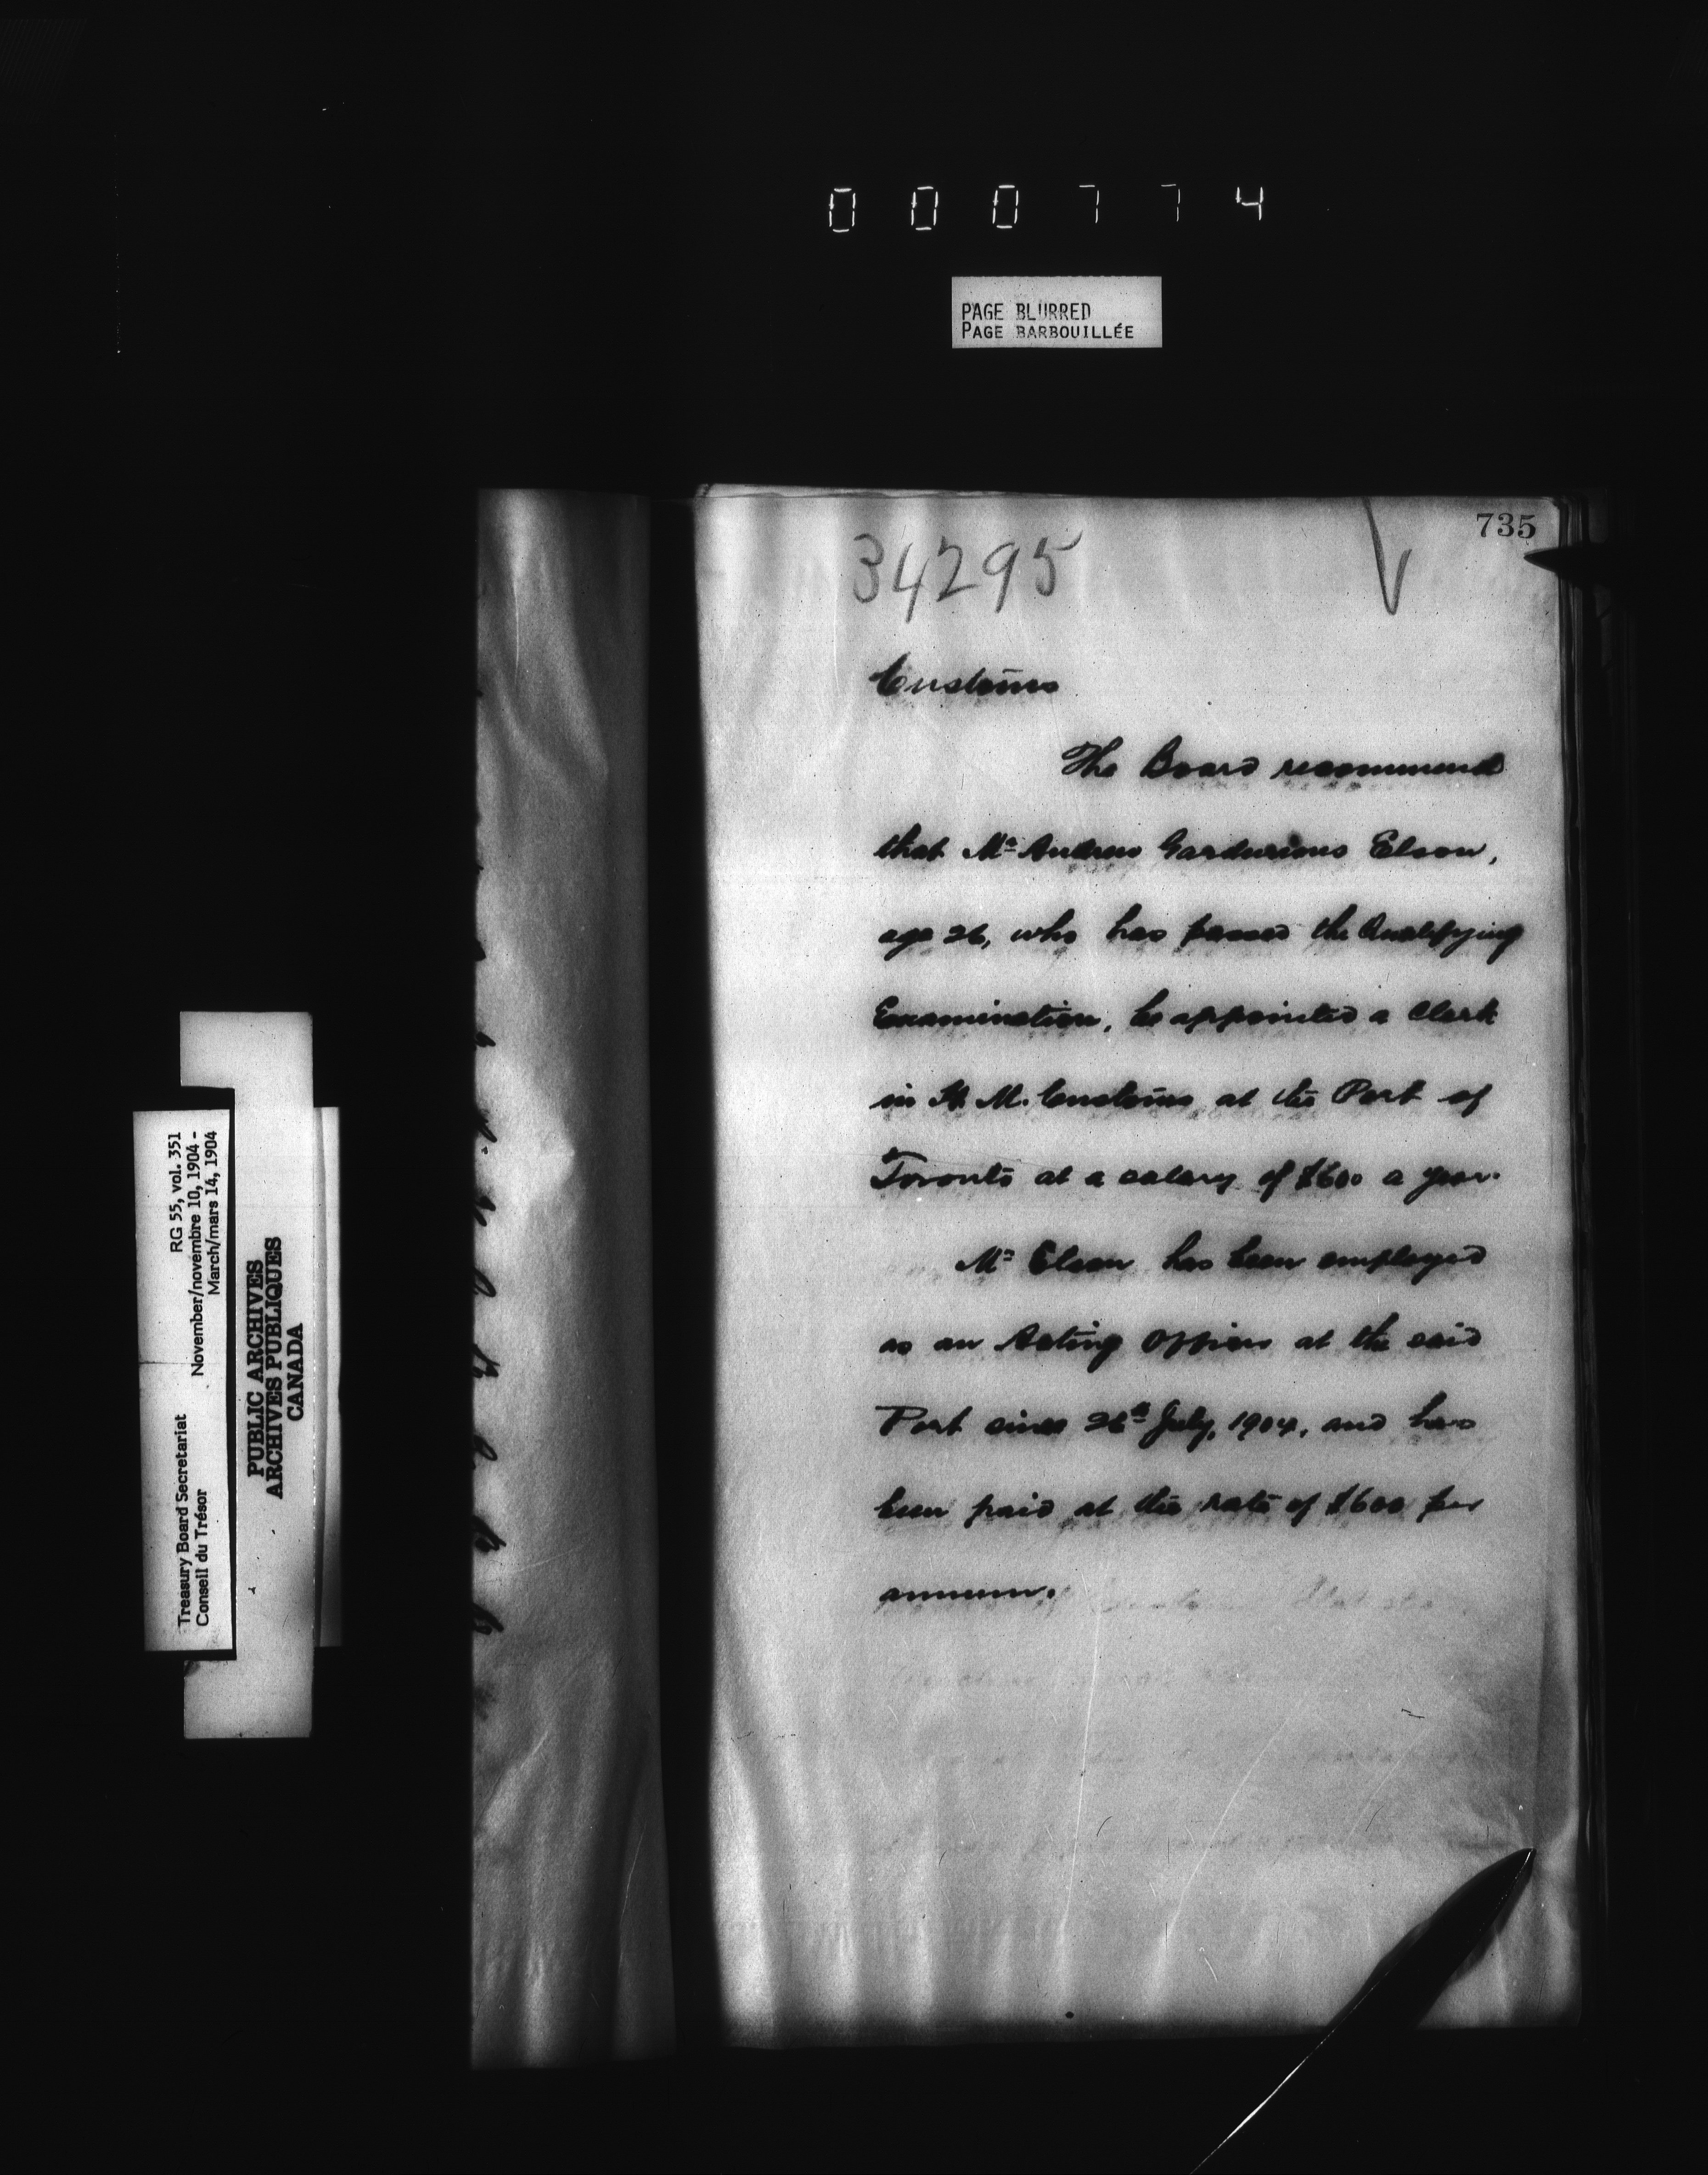 000774
PAGE BLURRED
PAGE BARBOUILLÉE
735
34295
Customs
The Board recommend
that Mr Andrew Elson,
age 26, who has passed the Qualifying
Examination, be appointed a Clerk
in H. M. Customs at the Port of
Toronto at a salary of $600 a year.
Mr Elson has been employed
as an Acting Officer at the said
Port since 26th July, 1904, and has
been paid at the rate of $600 per
annum.
Treasury Board Secretariat RG 55, vol. 351
Conseil du Trésor November/novembre 10, 1904 -
March/mars 14, 1904
PUBLIC ARCHIVES
ARCHIVES PUBLIQUES
CANADA